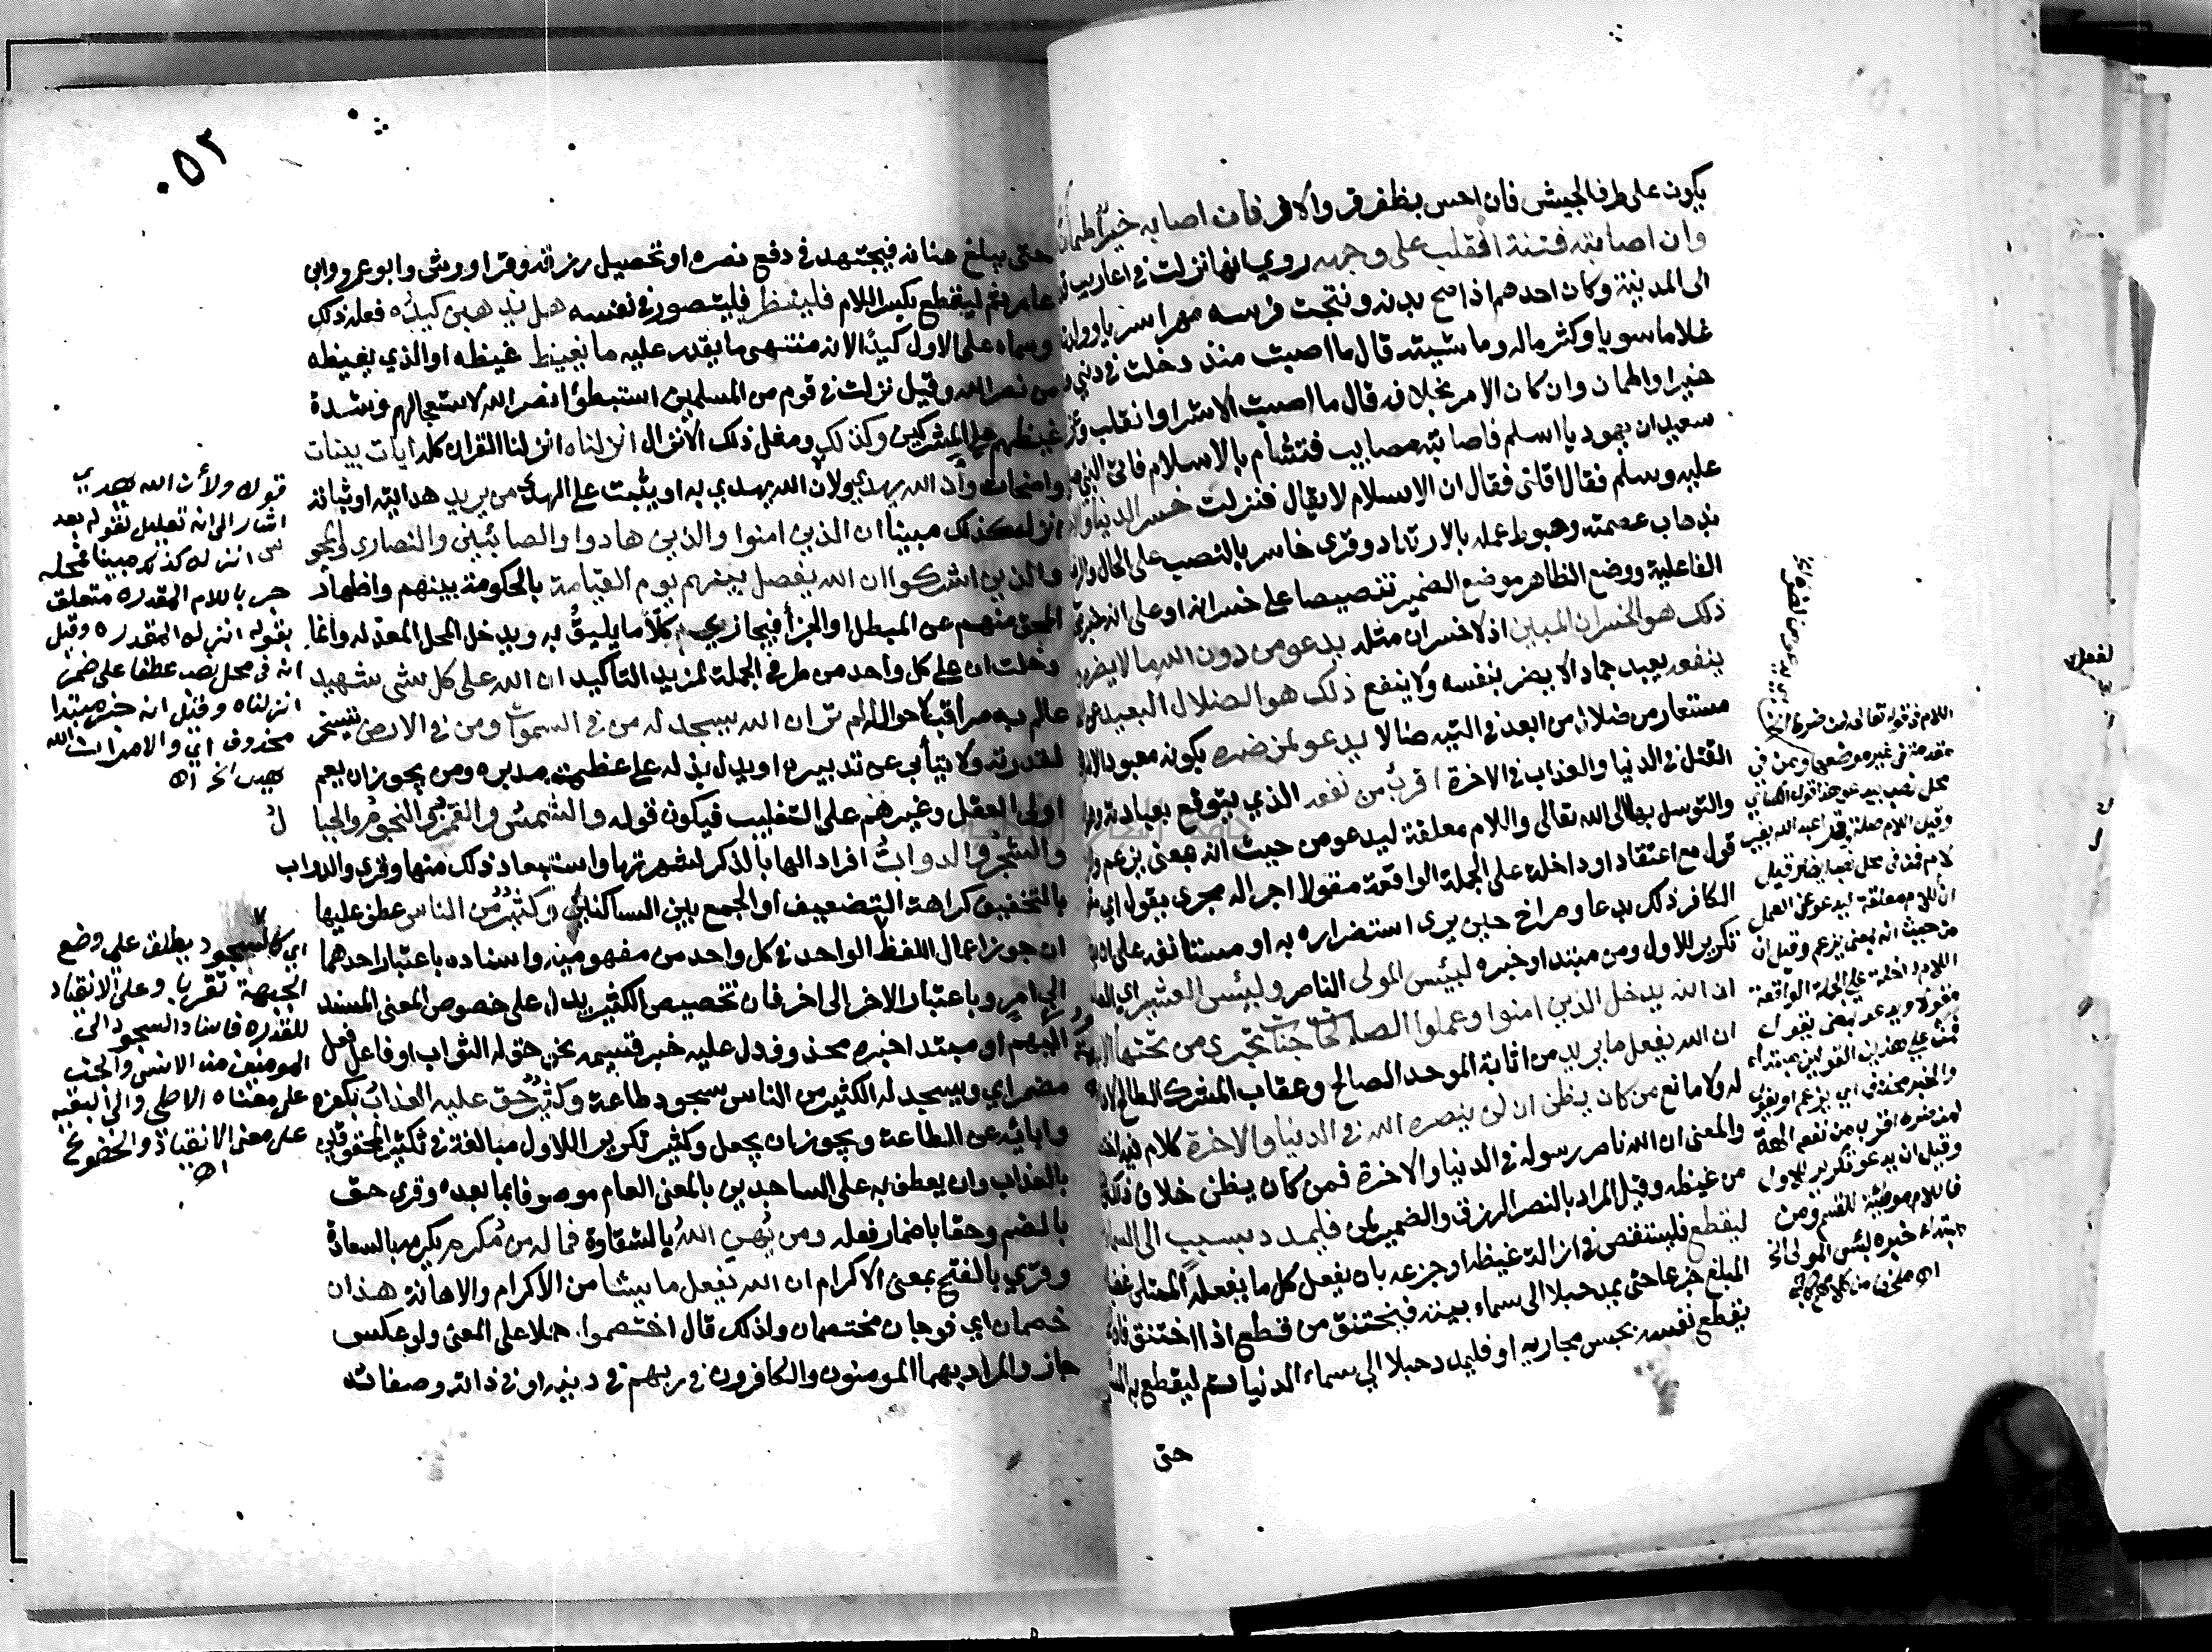 يكون على طرف الجيش فان احس بظفر قر والا فر فان اصابه خير اطمأن
وان اصابته فتنة انقلب على وجهه روي انها نزلت في اعاريب
الى المدينة وكان احدهم اذا صح بدنه ونتجت فرسه مهرا سريا وولدت
غلاما سويا وكثر ماله وماشيته قال ما اصبت منذ دخلت في ديني
خيرا واطمان وان كان الامر بخلافه قال ما اصبت الا شرا وانقلب
سعيد ان يهوديا اسلم فاصابته مصايب فتشأم بالاسلام فاتى النبي
عليه وسلم فقال اقلني فقال ان الاسلام لا يقال فنزلت خسر الدنيا
بذهاب عصمته وحبوط عمله بالارتداد وقرى خاسر بالنصب على الحال
الفاعلية ووضع الظاهر موضع الضمير تنصيصا على خسرانه او على انه خبر
ذلك هو الخسران المبين اذ لا خسران مثله يدعو من دون الله ما لا يضره
ينفعه يعبد جمادا لا يضر بنفسه ولا ينفع ذلك هو الضلال البعيد
مستعار من ضلال من ابعد في التيه ضالا يدعو لمن ضره بكونه معبودا
القتل في الدنيا والعذاب في الاخرة اقرب من نفعه الذي يتوقع بعبادته
والتوسل بها الى الله تعالى واللام معلقة ليدعو من حيث انه بمعنى يزعم
قول مع اعتقاد او داخلة على الجملة الواقعة مقولا اجراله مجرى يقول اي
الكافر ذلك بدعا وصراخ حين يرى استضراره به او مستأنفة على ان
تكرير للاول ومن مبتدا وخبره لبئس المولى الناصر ولبئس العشير
ان الله يدخل الذين امنوا وعملوا الصالحات جنات تجري من تحتها
ان الله يفعل ما يريد من اثابة الموحد الصالح وعقاب المشرك الطالح
له ولا مانع من كان يظن ان لن ينصره الله في الدنيا والاخرة كلام فيه
والمعنى ان الله ناصر رسوله في الدنيا والاخرة فمن كان يظن خلاف ذلك
من غيظه وقيل المراد بالنصر الرزق والضمير لمن فليمدد بسبب الى السماء
ليقطع فليستقص في ازالة غيظه او جزعه بان يفعل كل ما يفعله الممتلي
المبلغ جزعا حتى يمد حبلا الى سماء بيته فيختنق من قطع اذا اختنق
يقطع نفسه بحبس مجاريه او فليمدد حبلا الى سماء الدنيا ثم ليقطع به
حتى
اللام في قوله تعالى لمن ضره
مقدمة في غير موضعها ومن في
محل نصب بيدعو
ان اللام معلقة ليدعو عن العمل
من حيث انه بمعنى يزعم وقيل ان
اللام داخلة على الجملة الواقعة
والخبر محذوف اي
لمن ضره اقرب من نفعه
وقيل ان يدعو تكرير للاول
فاللام موطئة للقسم ومن
مبتداء خبره لبئس المولى الخ
٠٥٢
حتى يبلغ عنانه فيجتهد في دفع نصره او تحصيل رزقه وقرا ورش وابو عمرو وابن
عامر ثم ليقطع بكسر اللام فلينظر فليتصور في نفسه هل يذهبن كيده فعله ذلك
وسماه على الاول كيدا لانه منتهى ما يقدر عليه ما يغيظ غيظه او الذي يغيظه
من نصر الله وقيل نزلت في قوم من المسلمين استبطؤا نصر الله لاستعجالهم وشدة
غيظهم على المشركين وكذلك ومثل ذلك الانزال انزلناه انزلنا القران كله ايات بينات
واضحات وأن الله يهدي ولان الله يهدي به او يثبت على الهدى من يريد هدايته او ثباته
انزله كذلك مبينا ان الذين امنوا والذين هادوا والصابئين والنصارى والمجوس
والذين اشركوا ان الله يفصل بينهم يوم القيامة بالحكومة بينهم واظهار
المحق منهم عن المبطل او الجزأ فيجازي كلا ما يليق به ويدخل المحل المعد له وانما
دخلت ان على كل واحد من طرفي الجملة لمزيد التاكيد ان الله على كل شى شهيد
عالم به مراقب لاحواله الم تر ان الله يسجد له من في السموات ومن في الارض يتسخر
لقدرته ولا يتأبى عن تدبيره او يدل بذله على عظمة مدبره ومن يجوز ان يعم
اولى العقل وغيرهم على التغليب فيكون قوله والشمس والقمر والنجوم والجبال
والشجر والدواب افراد الها بالذكر لشهرتها واستبعاد ذلك منها وقرى والدواب
بالتخفيف كراهة التضعيف او الجمع بين الساكنين وكثير من الناس عطف عليها
ان جوز اعمال اللفظ الواحد في كل واحد من مفهوميه واسناده باعتبار احدهما
الى امر وباعتبار الاخر الى اخر فان تخصيص الكثير يدل على خصوص المعنى المسند
اليهم او مبتدا خبره محذوف دل عليه خبر قسيمه نحو حق له الثواب او فاعل فعل
مضمر اي ويسجد له الكثير من الناس سجود طاعة وكثير حق عليه العذاب بكفره
وابائه عن الطاعة ويجوز ان يجعل وكثير تكرير اللاول مبالغة في تكثير المحقوقين
بالعذاب وان يعطف به على الساجدين بالمعنى العام موصوفا بما بعده وقرى حق
بالضم وحقا باضمار فعله ومن يهن الله بالشقاوة فما له من مكرم يكرمه بالسعادة
وقري بالفتح بمعنى الاكرام ان الله يفعل ما يشا من الاكرام والاهانة هذان
خصمان اي فوجان مختصمان ولذلك قال اختصموا حملا على المعنى ولو عكس
جاز والمراد بهما المومنون والكافرون في ربهم في دينه او في ذاته وصفاته
قوله ولأن الله يهدي
اشار الى انه تعليل لقوله بعد
انزله كذلك مبينا فمحله
جر باللام المقدره متعلق
بقوله انزله المقدره وقيل
انه في محل نصب عطفا على ضمير
انزلناه وقيل انه خبر مبتدا
محذوف اي والامر ان الله
يهدي الخ اه
اي كالسجود يطلق على وضع
الجبهة تقربا وعلى الانقياد
للقدره فاسناد السجود الى
المومنين من الانس والجن
على معناه الاصلي والى البقيه
على معنى الانقياد والخضوع
اه